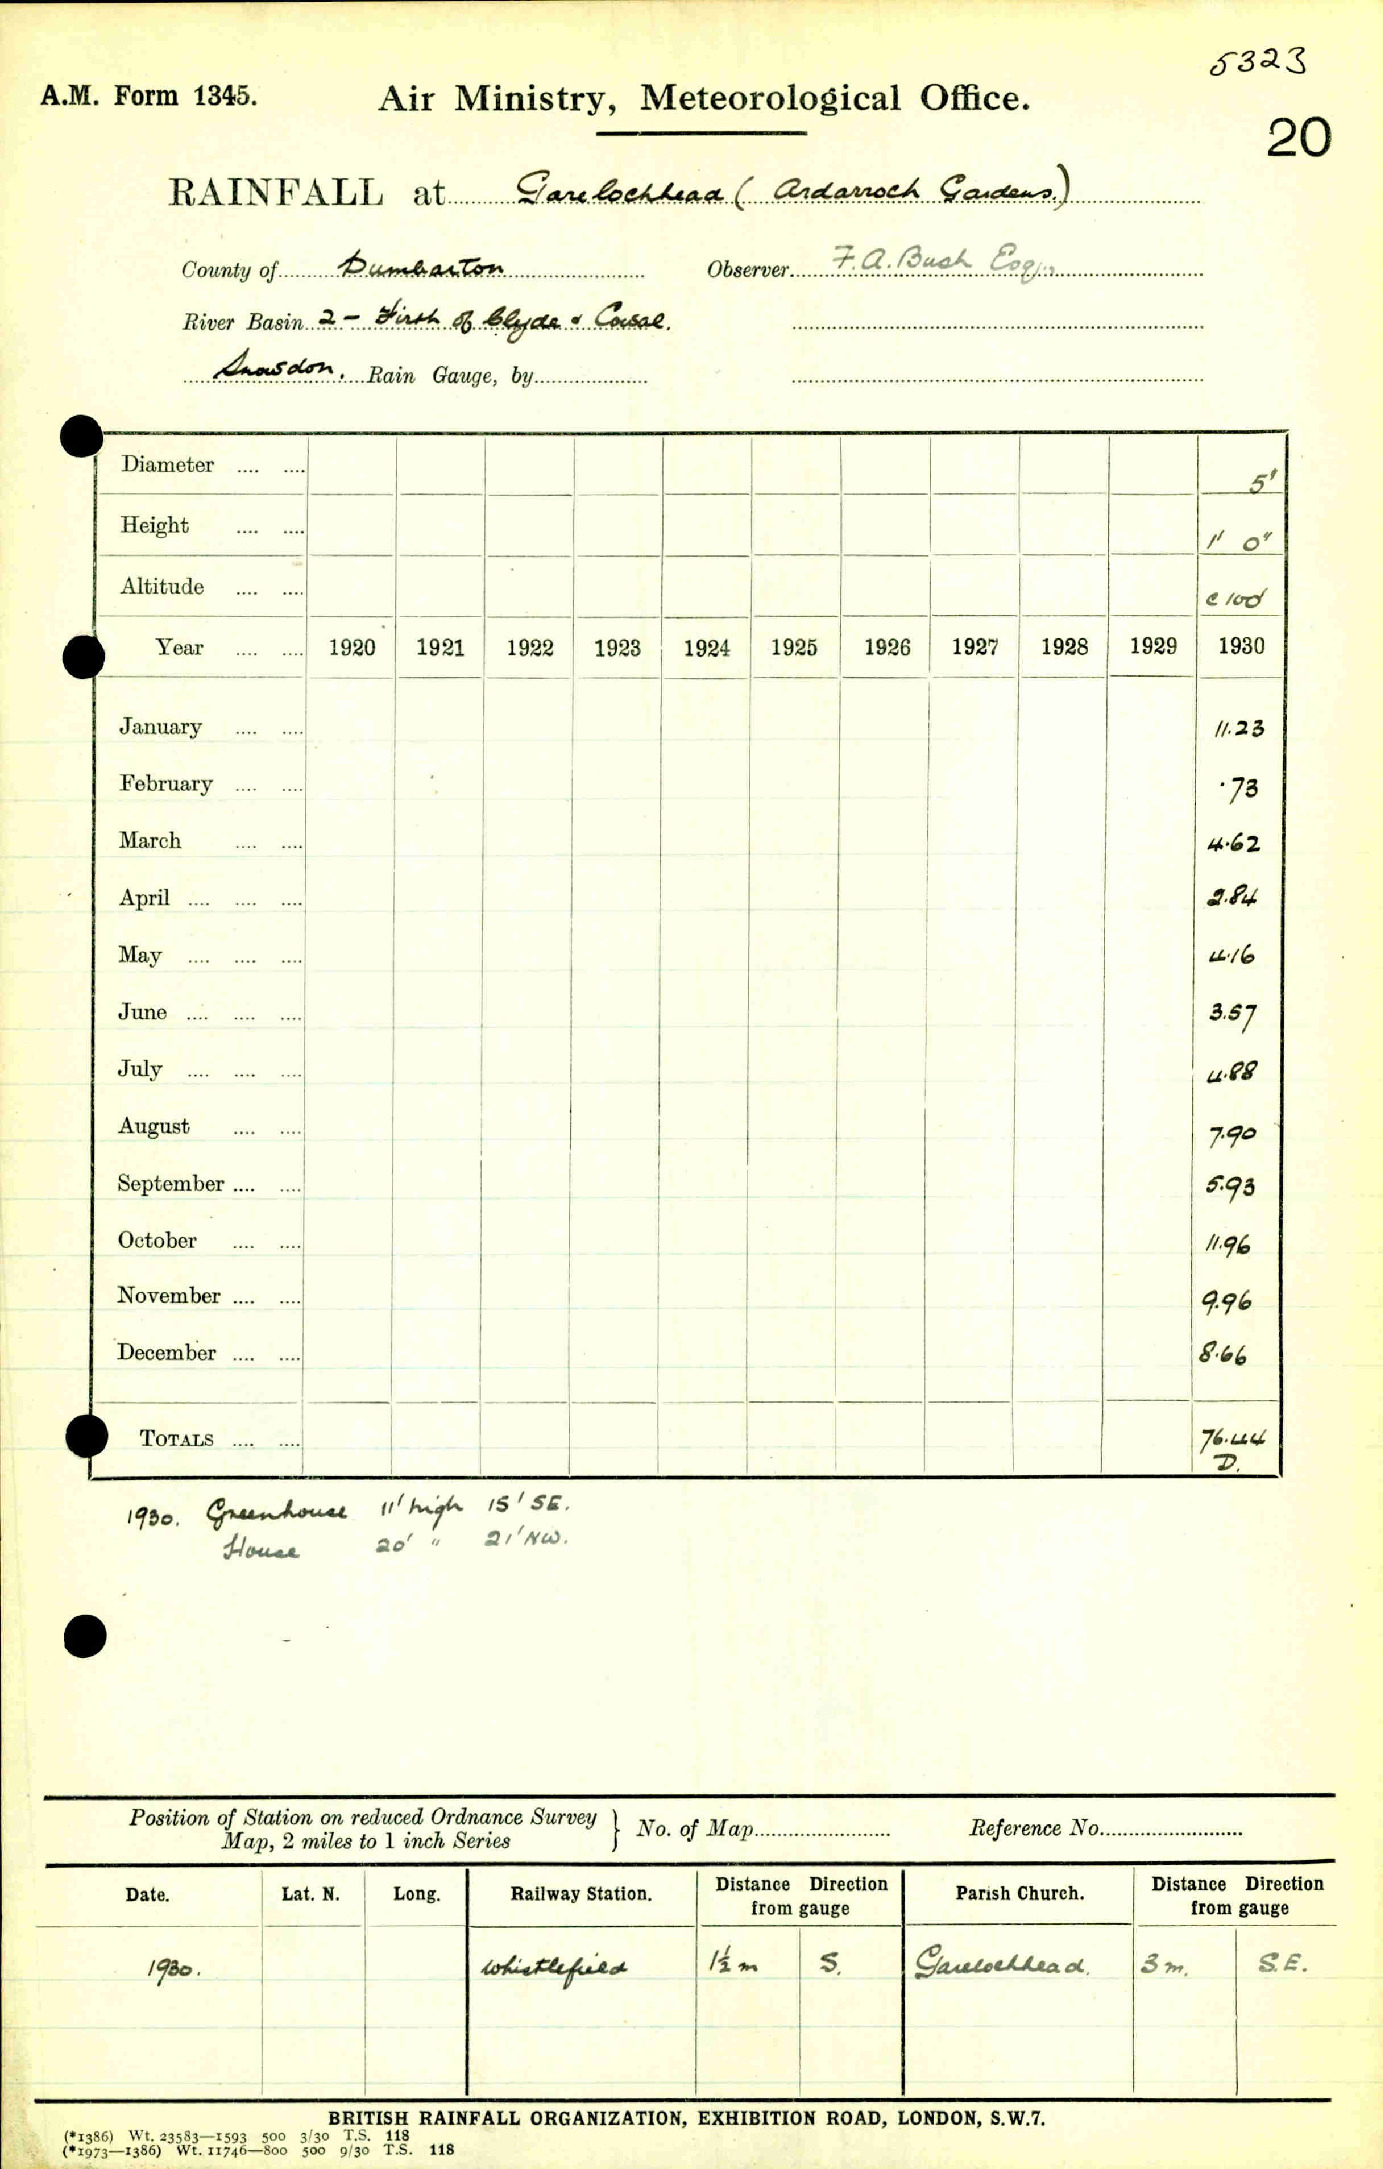 5323
A.M. Form 1345. Air Ministry, Meteorological Office.
20
RAINFALL at Garelochhead (Ardarroch Gardens.)
County of Dumbarton Observer F.A. Bush Esq.,
River Basin 2 - Firth of Clyde & Cowal.
Snowdon. Rain Gauge, by
Diameter .... .... 5"
Height .... .... 1' 0"
Altitude .... .... c 100'
Year .... .... 1920 1921 1922 1923 1924 1925 1926 1927 1928 1929 1930
January .... .... 11.23
February .... .... .73
March .... .... 4.62
April .... .... .... 2.84
May .... .... .... 4.16
June .... .... .... 3.57
July .... .... .... 4.88
August .... .... 7.90
September .... .... 5.93
October .... .... 11.96
November .... .... 9.96
December .... .... 8.66
TOTALS .... .... 76.44
D.
1930. Greenhouse 11' high 15' SE.
House 20' " 21' NW.
Position of Station on reduced Ordnance Survey
Map, 2 miles to 1 inch Series } No. of Map Reference No.
Date. Lat. N. Long. Railway Station. Distance Direction from gauge Parish Church. Distance Direction from gauge
1930. Whistlefield 1½ m S. Garelochhead. 3 m. S.E.
BRITISH RAINFALL ORGANIZATION, EXHIBITION ROAD, LONDON, S.W.7.
(*1386) Wt. 23583—1593 500 3/30 T.S. 118
(*1973—1386) Wt. 11746—800 500 9/30 T.S. 118